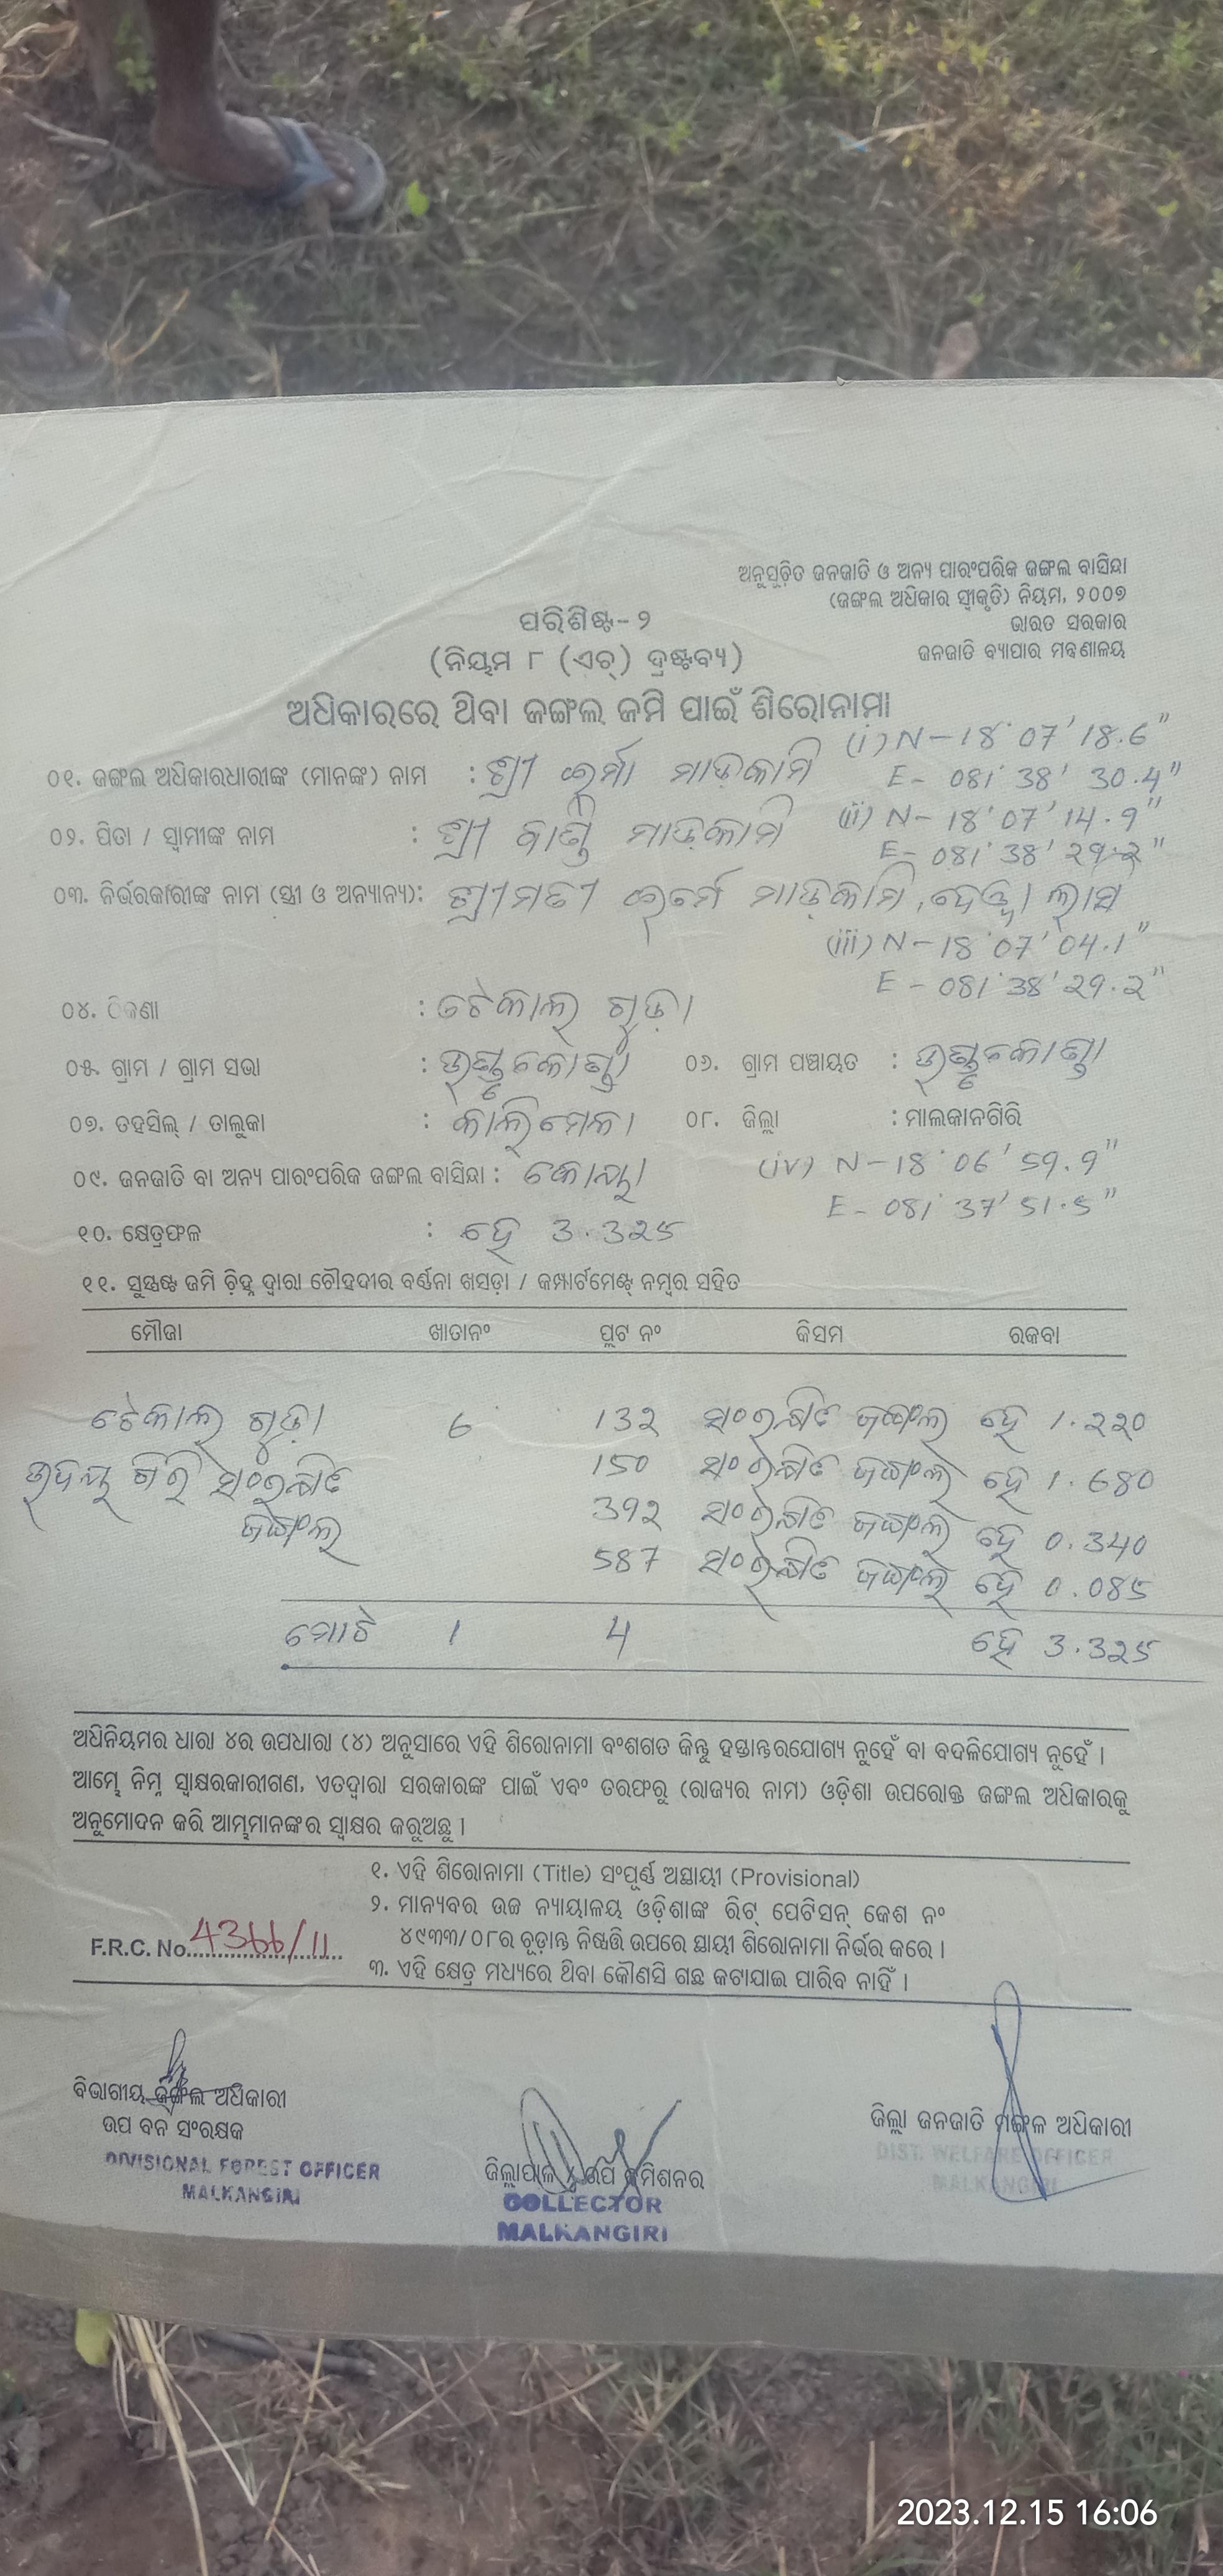 ଅନୁସୂଚିତ ଜନଜାତି ଓ ଅନ୍ୟ ପାରଂପରିକ ଜଙ୍ଗଲ ବାସିନ୍ଦା
(ଜଙ୍ଗଲ ଅଧିକାର ସ୍ୱୀକୃତି) ନିୟମ, ୨୦୦୭
ଭାରତ ସରକାର
ଜନଜାତି ବ୍ୟାପାର ମନ୍ତ୍ରଣାଳୟ
ପରିଶିଷ୍ଟ-୨
(ନିୟମ ୮ (ଏଚ୍) ଦ୍ରଷ୍ଟବ୍ୟ)
ଅଧିକାରରେ ଥିବା ଜଙ୍ଗଲ ଜମି ପାଇଁ ଶିରୋନାମା
(i) N-18°07'18.6"
୦୧. ଜଙ୍ଗଲ ଅଧିକାରଧାରୀଙ୍କ (ମାନଙ୍କ) ନାମ : ଶ୍ରୀ ଇର୍ମା ମାଡ଼କାମି E- 081°38' 30.4"
(ii) N-18°07'14.9"
୦୨. ପିତା / ସ୍ୱାମୀଙ୍କ ନାମ : ଶ୍ରୀ ମାଡ଼କାମି E- 081°38' 29.2"
୦୩. ନିର୍ଭରକାରୀଙ୍କ ନାମ (ସ୍ତ୍ରୀ ଓ ଅନ୍ୟାନ୍ୟ): ଶ୍ରୀମତୀ ଇର୍ମେ ମାଡ଼କାମି,
(iii) N-18°07'04.1"
E - 081°38'29.2"
୦୪. ଠିକଣା : ଟେକାଲ ଗୁଡ଼ା
୦୫. ଗ୍ରାମ / ଗ୍ରାମ ସଭା : ୦୬. ଗ୍ରାମ ପଞ୍ଚାୟତ :
୦୭. ତହସିଲ୍ / ତାଲୁକା : କାଲିମେଳା ୦୮. ଜିଲ୍ଲା : ମାଲକାନଗିରି
୦୯. ଜନଜାତି ବା ଅନ୍ୟ ପାରଂପରିକ ଜଙ୍ଗଲ ବାସିନ୍ଦା : କୋୟା (iv) N-18°06'59.9"
E- 081°37'51.5"
୧୦. କ୍ଷେତ୍ରଫଳ : ହେ 3.325
୧୧. ସୁସ୍ପଷ୍ଟ ଜମି ଚିହ୍ନ ଦ୍ୱାରା ଚୌହଦୀର ବର୍ଣ୍ଣନା ଖସଡ଼ା / କମ୍ପାର୍ଟମେଣ୍ଟ୍ ନମ୍ବର ସହିତ
ମୌଜା ଖାତାନଂ ପ୍ଲଟ ନଂ କିସମ ରକବା
ଟେକାଲ ଗୁଡ଼ା 6 132 ସଂରକ୍ଷିତ ଜଙ୍ଗଲ ହେ 1.220
ଉଦୟ ଗିରି ସଂରକ୍ଷିତ 150 ସଂରକ୍ଷିତ ଜଙ୍ଗଲ ହେ 1.680
ଜଙ୍ଗଲ 392 ସଂରକ୍ଷିତ ଜଙ୍ଗଲ ହେ 0.340
587 ସଂରକ୍ଷିତ ଜଙ୍ଗଲ ହେ 0.085
ମୋଟ 1 4 ହେ 3.325
ଅଧିନିୟମର ଧାରା ୪ର ଉପଧାରା (୪) ଅନୁସାରେ ଏହି ଶିରୋନାମା ବଂଶଗତ କିନ୍ତୁ ହସ୍ତାନ୍ତରଯୋଗ୍ୟ ନୁହେଁ ବା ବଦଳିଯୋଗ୍ୟ ନୁହେଁ ।
ଆମ୍ଭେ ନିମ୍ନ ସ୍ୱାକ୍ଷରକାରୀଗଣ, ଏତଦ୍ଵାରା ସରକାରଙ୍କ ପାଇଁ ଏବଂ ତରଫରୁ (ରାଜ୍ୟର ନାମ) ଓଡ଼ିଶା ଉପରୋକ୍ତ ଜଙ୍ଗଲ ଅଧିକାରକୁ
ଅନୁମୋଦନ କରି ଆମ୍ଭମାନଙ୍କର ସ୍ୱାକ୍ଷର କରୁଅଛୁ ।
୧. ଏହି ଶିରୋନାମା (Title) ସଂପୂର୍ଣ୍ଣ ଅସ୍ଥାୟୀ (Provisional)
୨. ମାନ୍ୟବର ଉଚ୍ଚ ନ୍ୟାୟାଳୟ ଓଡ଼ିଶାଙ୍କ ରିଟ୍ ପେଟିସନ୍ କେଶ ନଂ
୪୯୩୩/୦୮ର ଚୂଡ଼ାନ୍ତ ନିଷ୍ପତ୍ତି ଉପରେ ସ୍ଥାୟୀ ଶିରୋନାମା ନିର୍ଭର କରେ ।
F.R.C. No. 4366/11
୩. ଏହି କ୍ଷେତ୍ର ମଧ୍ୟରେ ଥିବା କୌଣସି ଗଛ କଟାଯାଇ ପାରିବ ନାହିଁ ।
ବିଭାଗୀୟ ଜଙ୍ଗଲ ଅଧିକାରୀ
ଉପ ବନ ସଂରକ୍ଷକ
DIVISIONAL FOREST OFFICER
MALKANGIRI
ଜିଲ୍ଲାପାଳ / ଉପ କମିଶନର
COLLECTOR
MALKANGIRI
ଜିଲ୍ଲା ଜନଜାତି ମଙ୍ଗଳ ଅଧିକାରୀ
DIST. WELFARE OFFICER
MALKANGIRI
2023.12.15 16:06